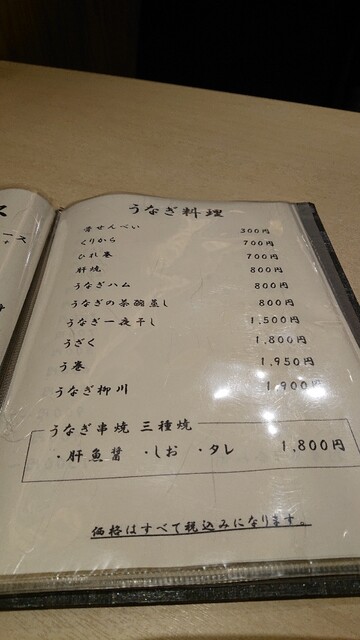 うなぎ料理
骨せんべい 300円
くりから 700円
ひれ巻 700円
肝焼 800円
うなぎハム 800円
うなぎの茶碗蒸し 800円
うなぎ一夜干し 1,500円
うざく 1,800円
う巻 1,950円
うなぎ柳川 1,900円
うなぎ串焼 三種焼
・肝魚醤 ・しお ・タレ 1,800円
価格はすべて税込みになります。
ース